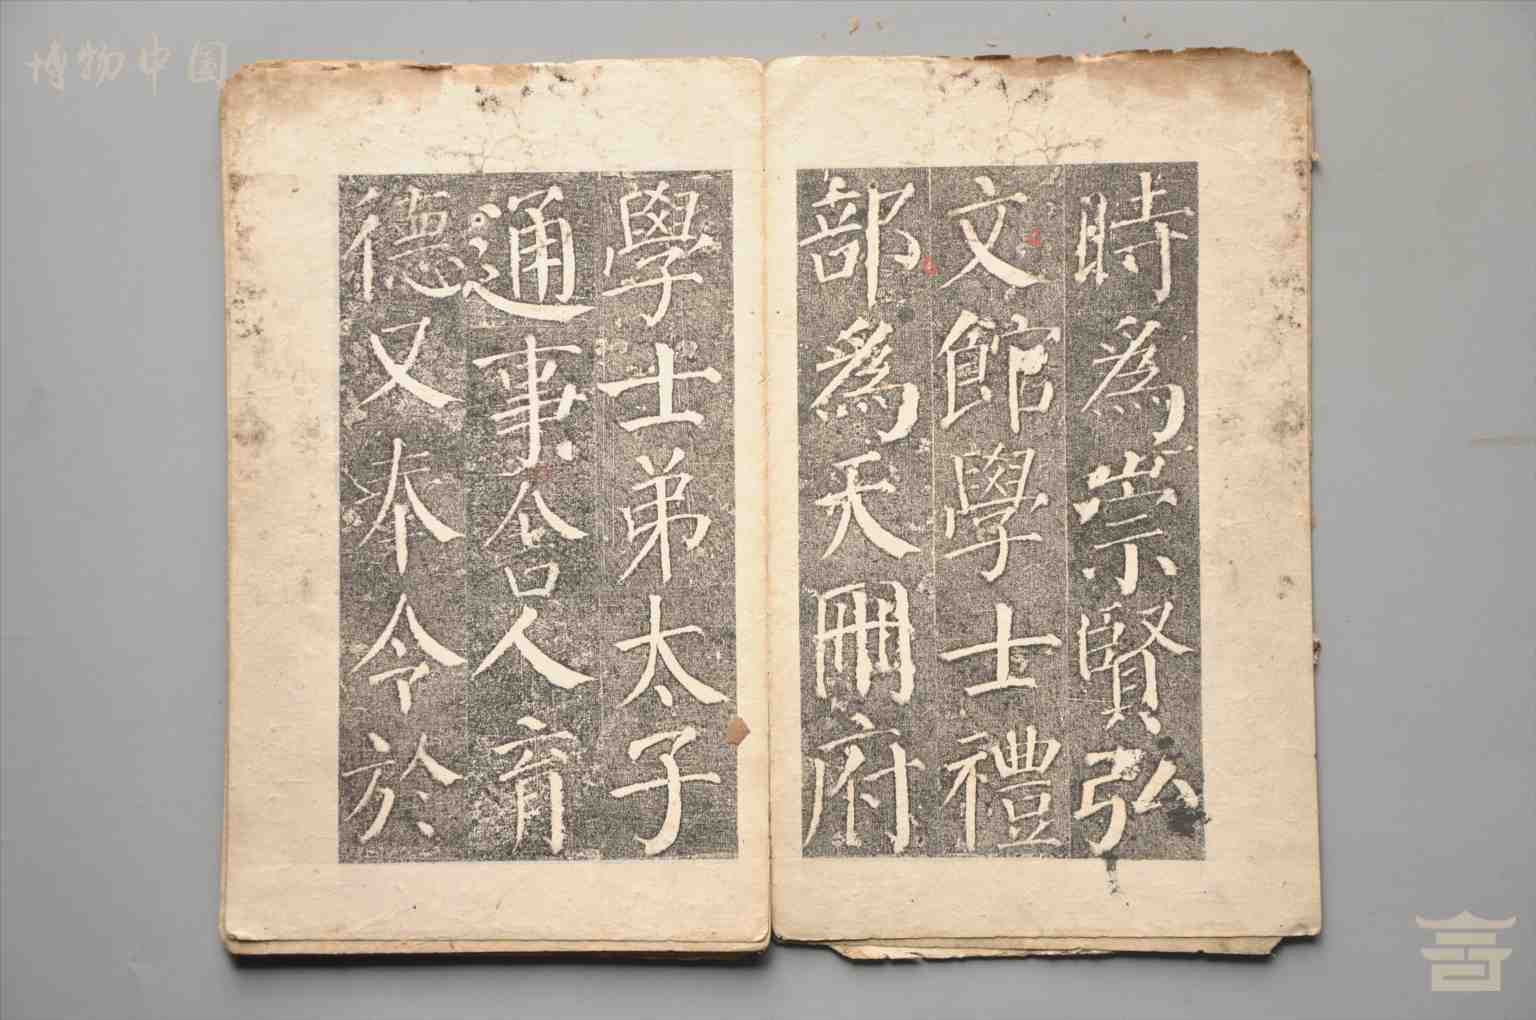 博物中国
時為崇賢弘
文館學士禮
部為天冊府
學士弟太子
通事舍人育
德又奉令於